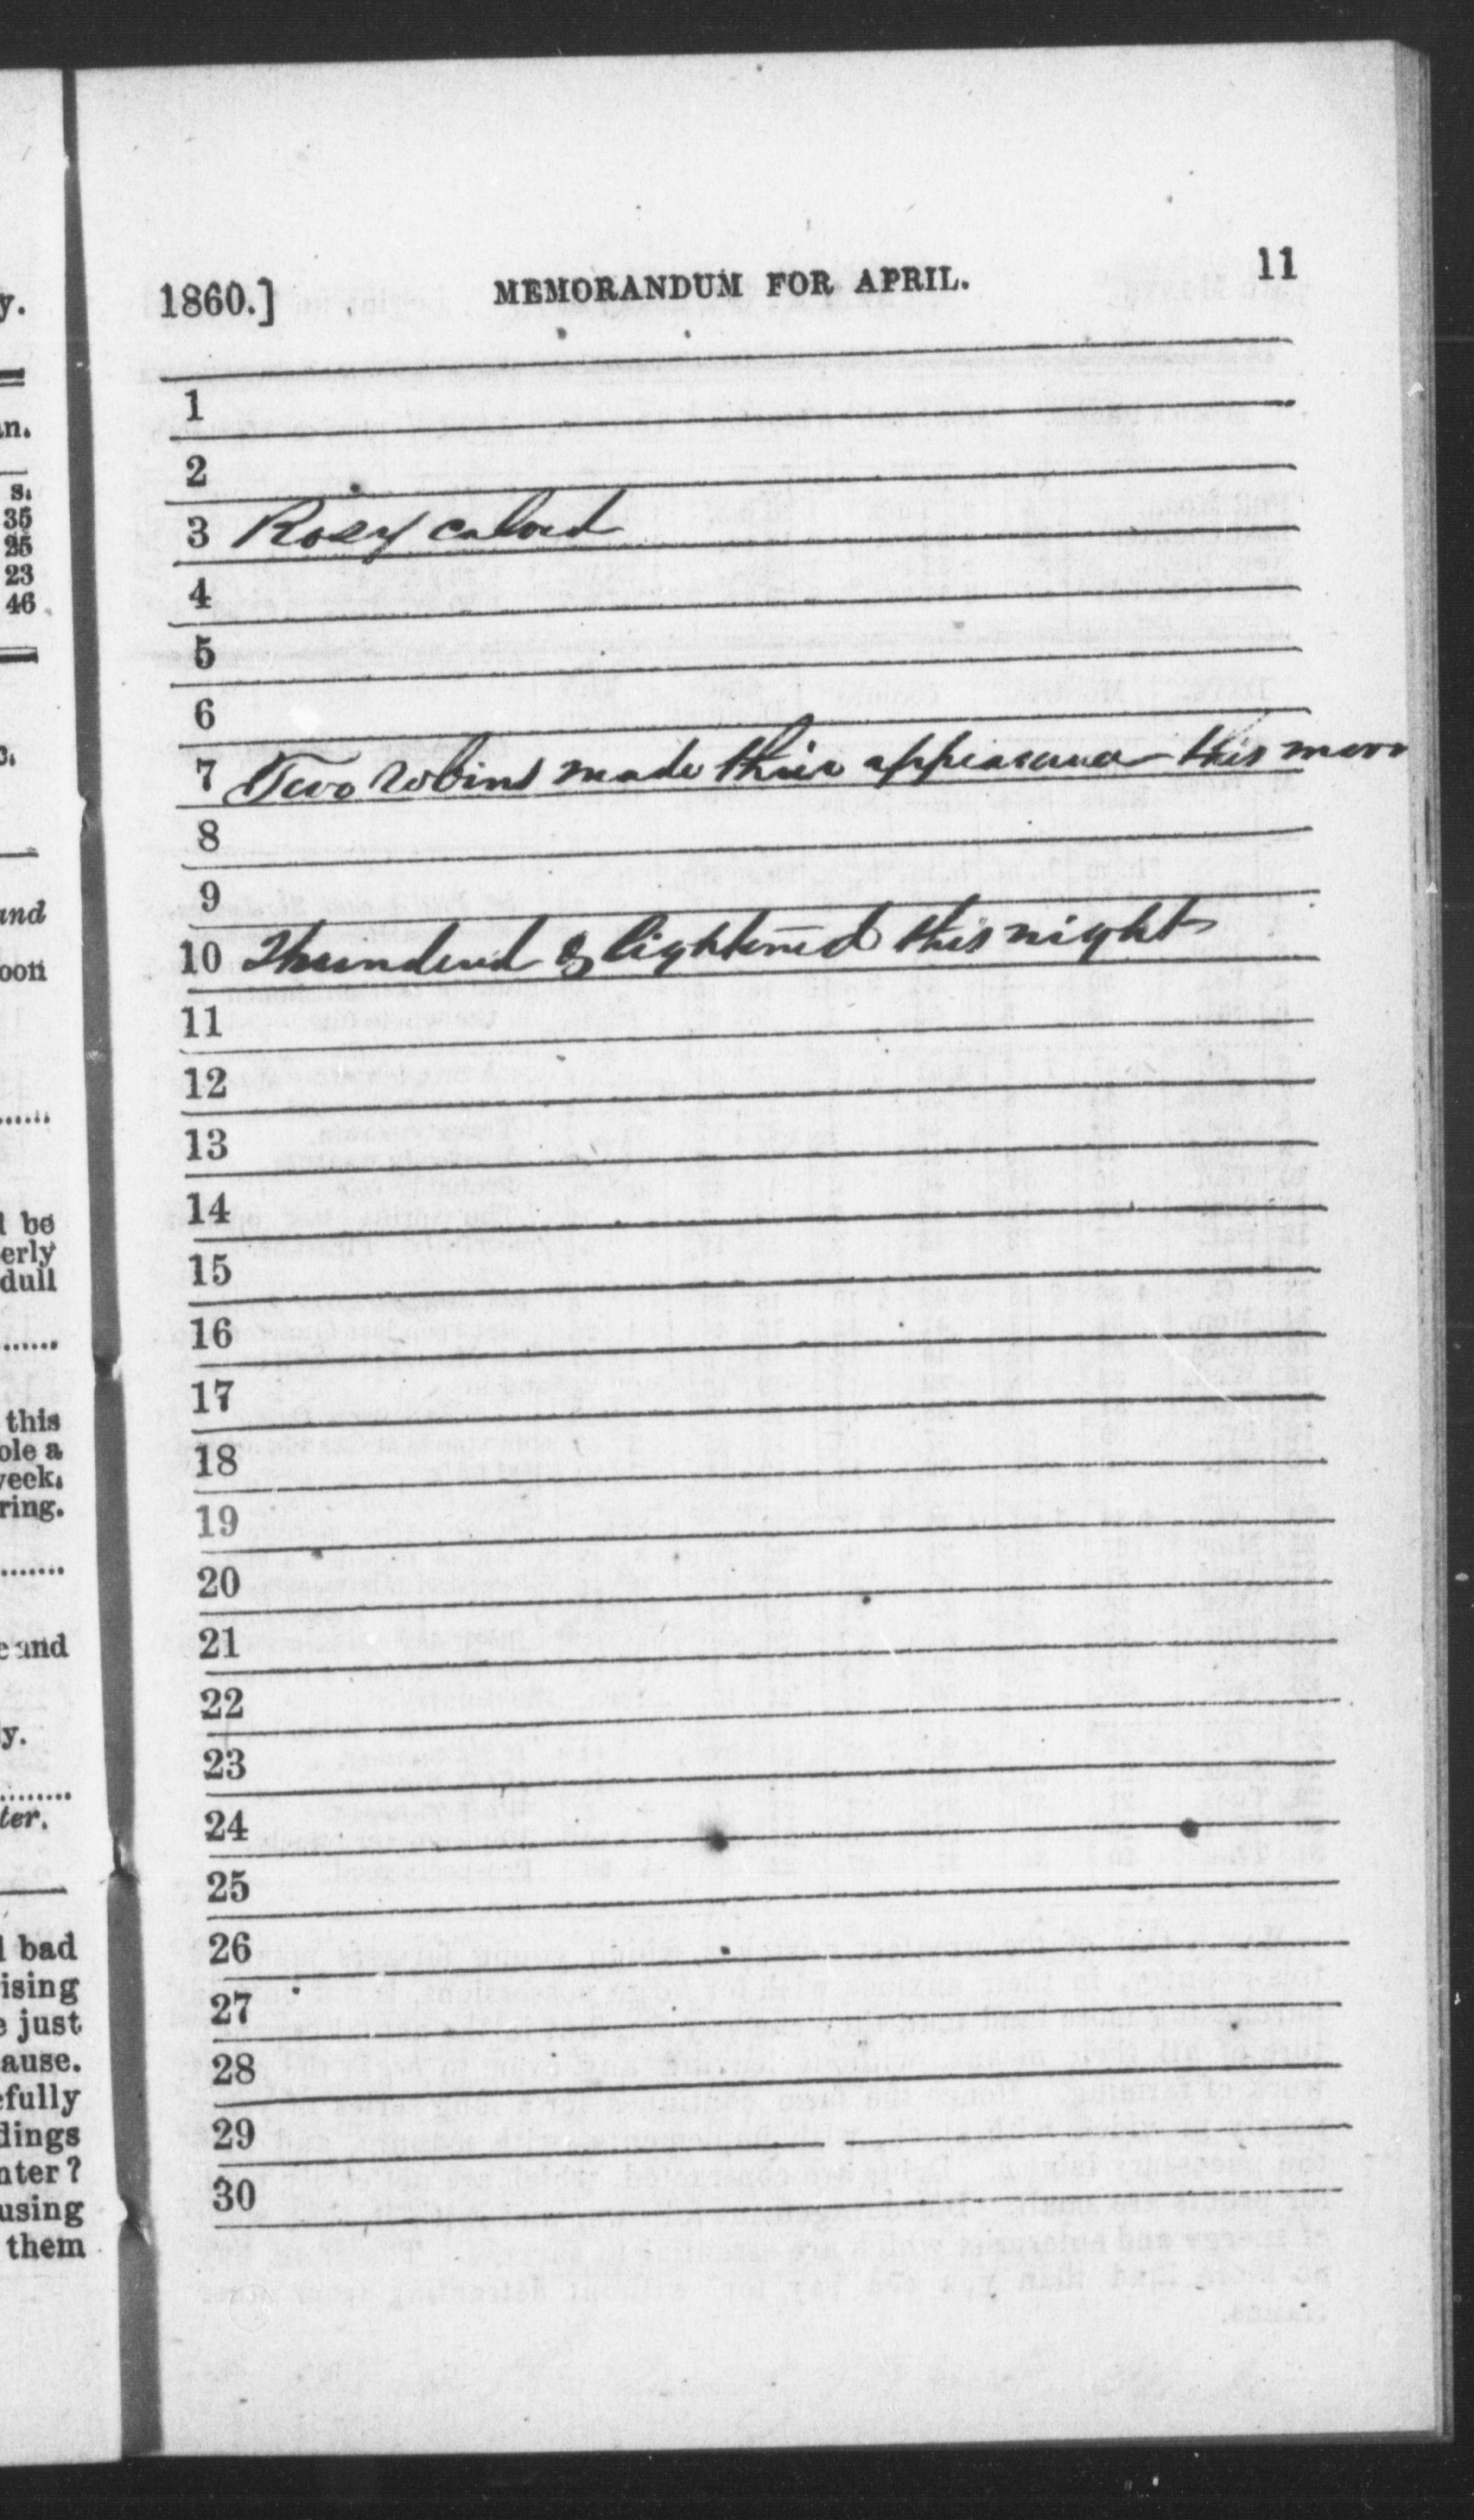 y.
an.
s.
35
25
23
46
and
oon
......
l be
erly
dull
......
this
ole a
week.
ring.
........
e and
y.
........
ter.
l bad
ising
e just
ause.
efully
dings
nter?
using
them
1860.] MEMORANDUM FOR APRIL. 11
1
2
3 Rosey calved
4
5
6
7 Two Robins made their appearance this morn
8
9
10 Thundered & lightened this night
11
12
13
14
15
16
17
18
19
20
21
22
23
24
25
26
27
28
29
30